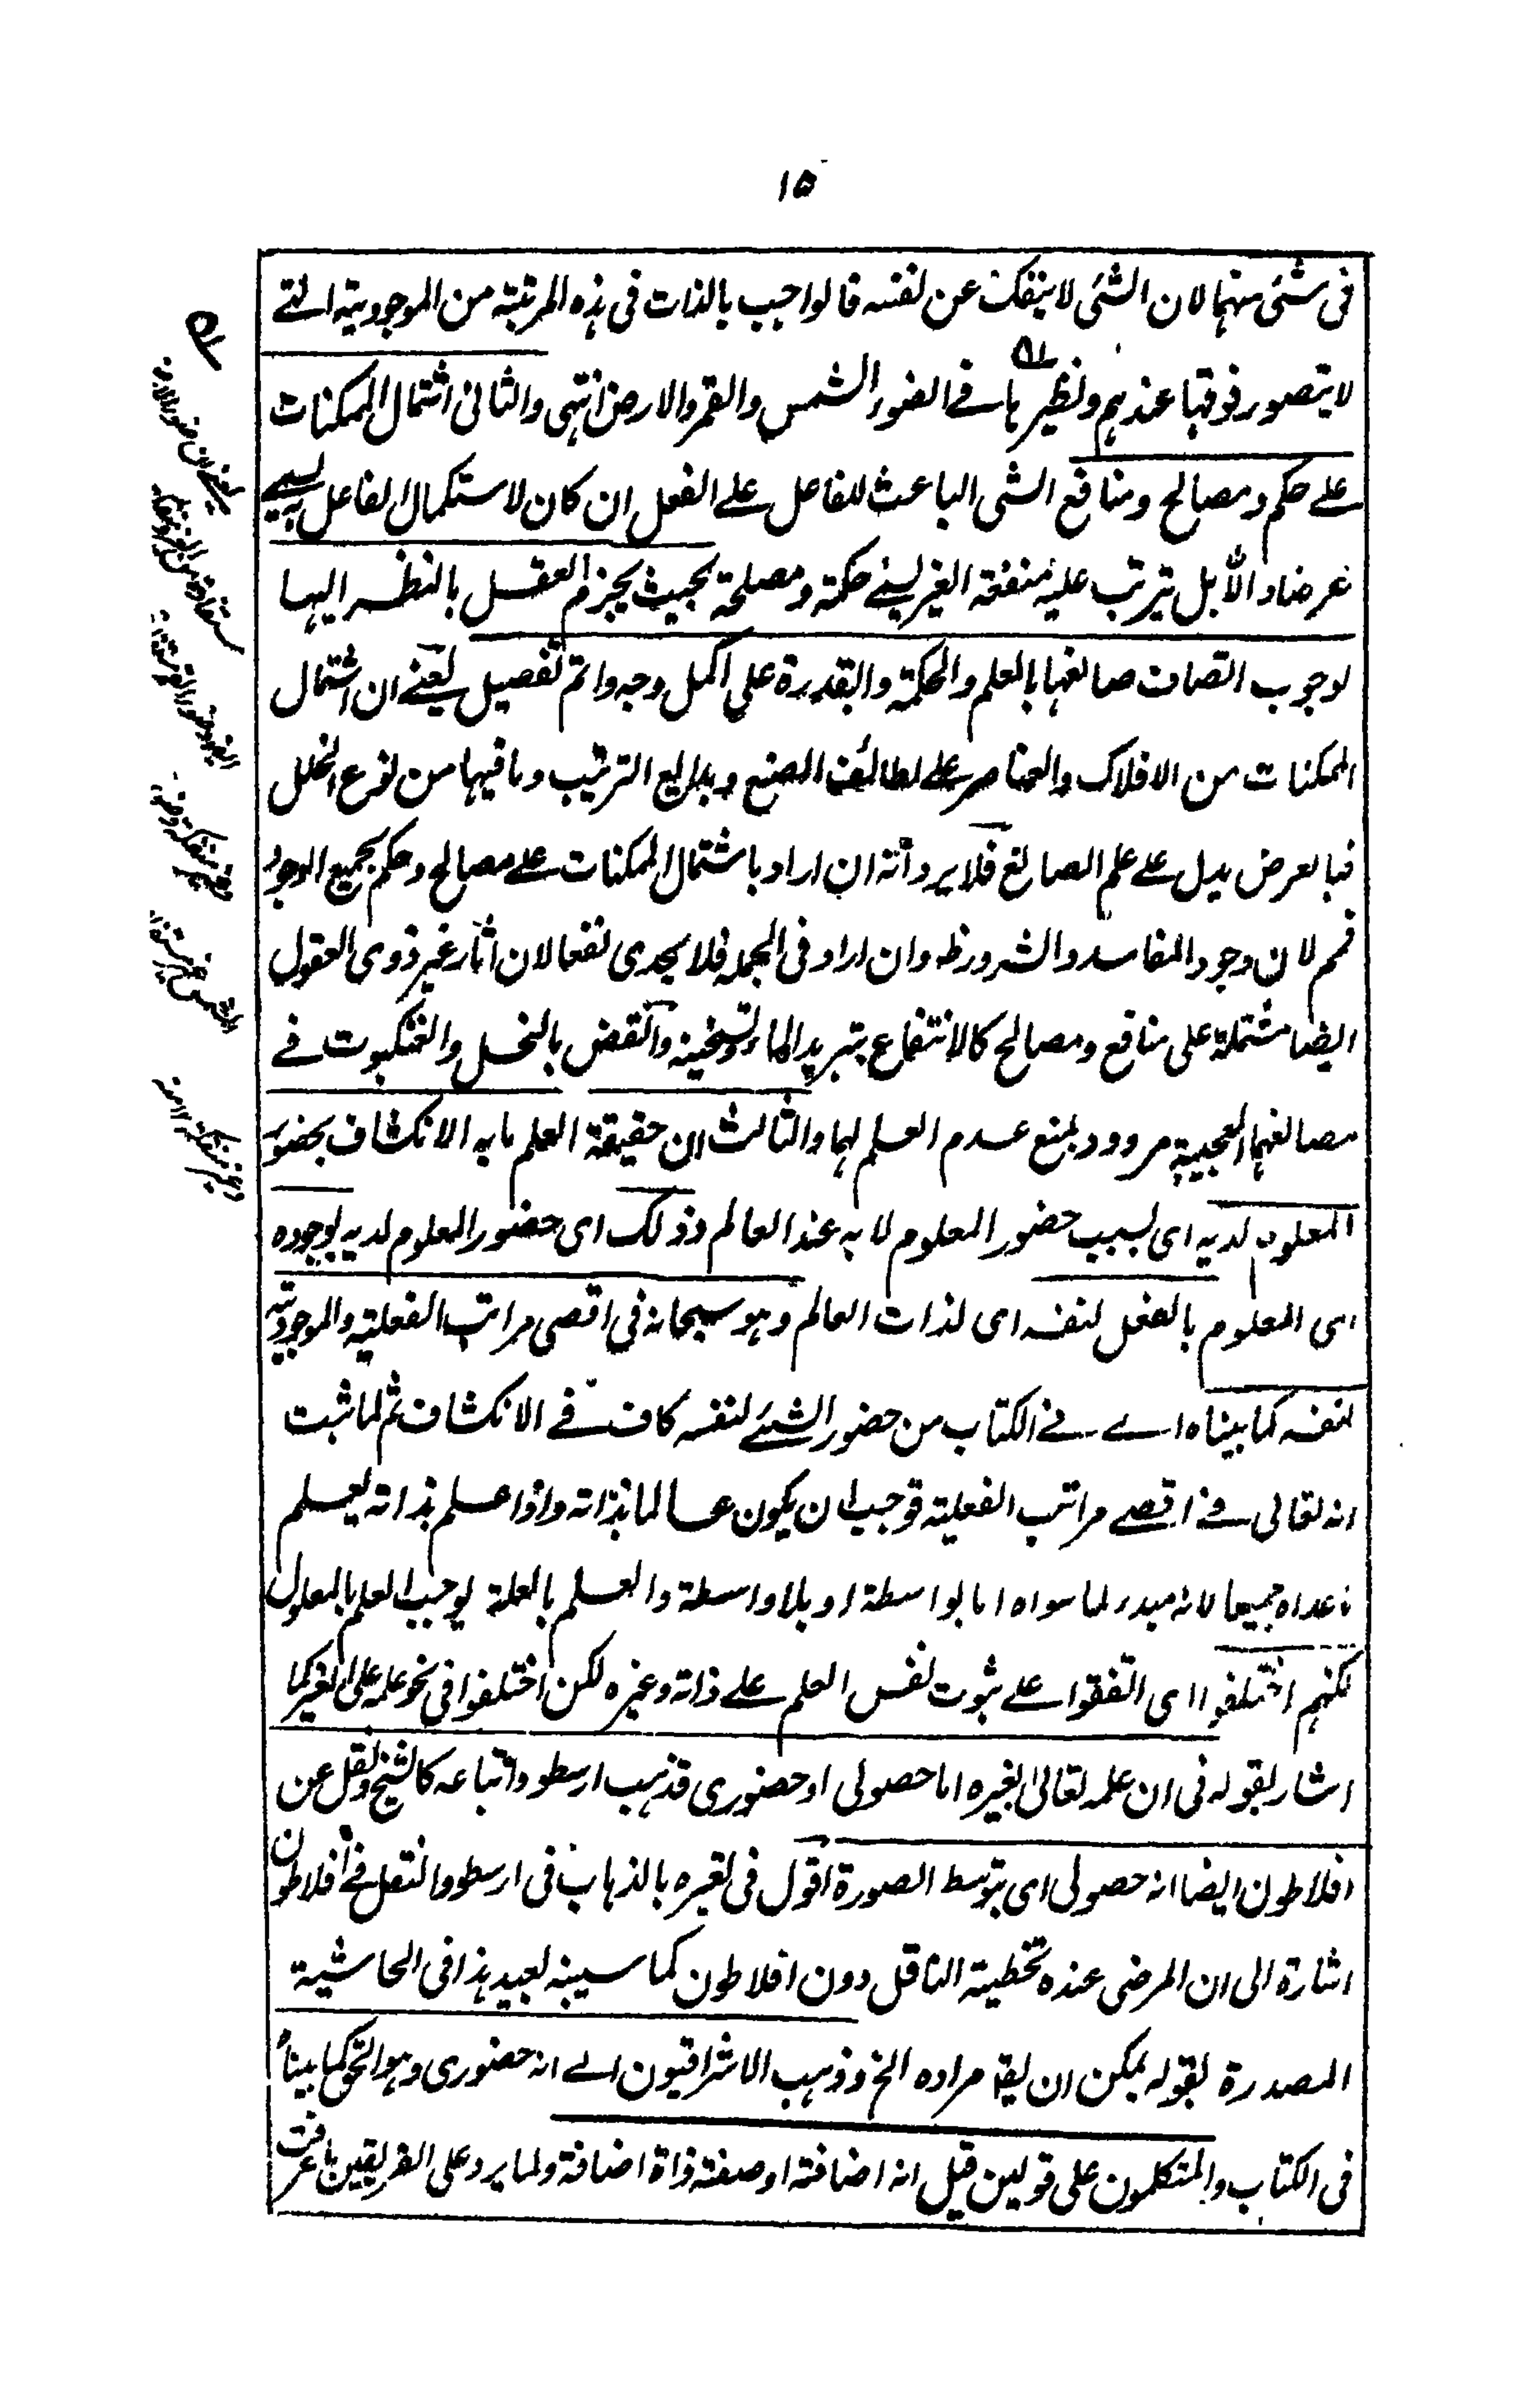 ١٥
فى شئ منهما لان الشئ لا ينفك عن نفسه فالواجب بالذات فى هذه المرتبة من الموجودية التے
لا يتصور فوقها عندهم ونظيرها فے الضوء الشمس والقمر والارض انتهى والثانى اشتمال الممكنات
علے حكم ومصالح ومنافع الشى الباعث للفاعل علے الفعل ان كان لاستكمال الفاعل يسمے
غرضا والا بل يترتب عليه منفعة الغير يسمے حكمة ومصلحة بحيث يجزم العقل بالنظر اليها
لوجوب اتصاف صانعها بالعلم والحكمة والقدرة على اكمل وجه واتم تفصيل يعنے ان اشتمال
الممكنات من الافلاك والعناصر علے لطائف الصنع وبدايع الترتيب وما فيها من نوع الخلل
فبالعرض يدل علے علم الصانع فلا يرد أنه ان اراد باشتمال الممكنات علے مصالح وحكم بجميع الوجوه
فمم لان وجود المفاسد والشرور ظ وان اراد فى الجملة فلا يجدى نفعا لان آثار غير ذوى العقول
ايضا مشتملة على منافع ومصالح كالانتفاع بتبريد الماء وتسخينه والنقض بالنحل والعنكبوت فے
مصانعهما العجيبة مردود بمنع عدم العلم لهما والثالث ان حقيقة العلم ما به الانكشاف بحضور
المعلوم لديه اى بسبب حضور المعلوم لا به عند العالم وذلك اى حضور المعلوم لديه بوجوده
اى المعلوم بالفعل لنفسه اى لذات العالم وهو سبحانه فى اقصى مراتب الفعلية والموجودية
لنفسه كما بيناه اے فے الكتاب من حضور الشئے لنفسه كاف فے الانكشاف ثم لما ثبت
انه تعالى فے اقصے مراتب الفعلية فوجب ان يكون عالما بذاته واذا علم بذاته يعلم
ما عداه جميعا لانه مبدء لما سواه اما بواسطة او بلا واسطة والعلم بالعلة يوجب العلم بالمعلول
لكنهم اختلفوا اى اتفقوا علے ثبوت نفس العلم علے ذاته وغيره لكن اختلفوا فى نحو علمه على الغير كما
اشار بقوله فى ان علمه تعالى بغيره اما حصولى او حضورى فذهب ارسطو واتباعه كالشيخ ونقل عن
افلاطون ايضا انه حصولى اى بتوسط الصورة اقول فى تعبيره بالذهاب فى ارسطو والنقل فے افلاطون
اشارة الى ان المرضى عنده تخطية الناقل دون افلاطون كما سيبينه بعيد هذا فى الحاشية
المصدرة بقوله يمكن ان يقه مراده الخ وذهب الاشراقيون الے انه حضورى وهو الحق كما بيناه
فى الكتاب والمتكلمون على قولين قيل انه اضافة او صفة ذاة اضافة ولما يرد على الفريقين ما عرفت